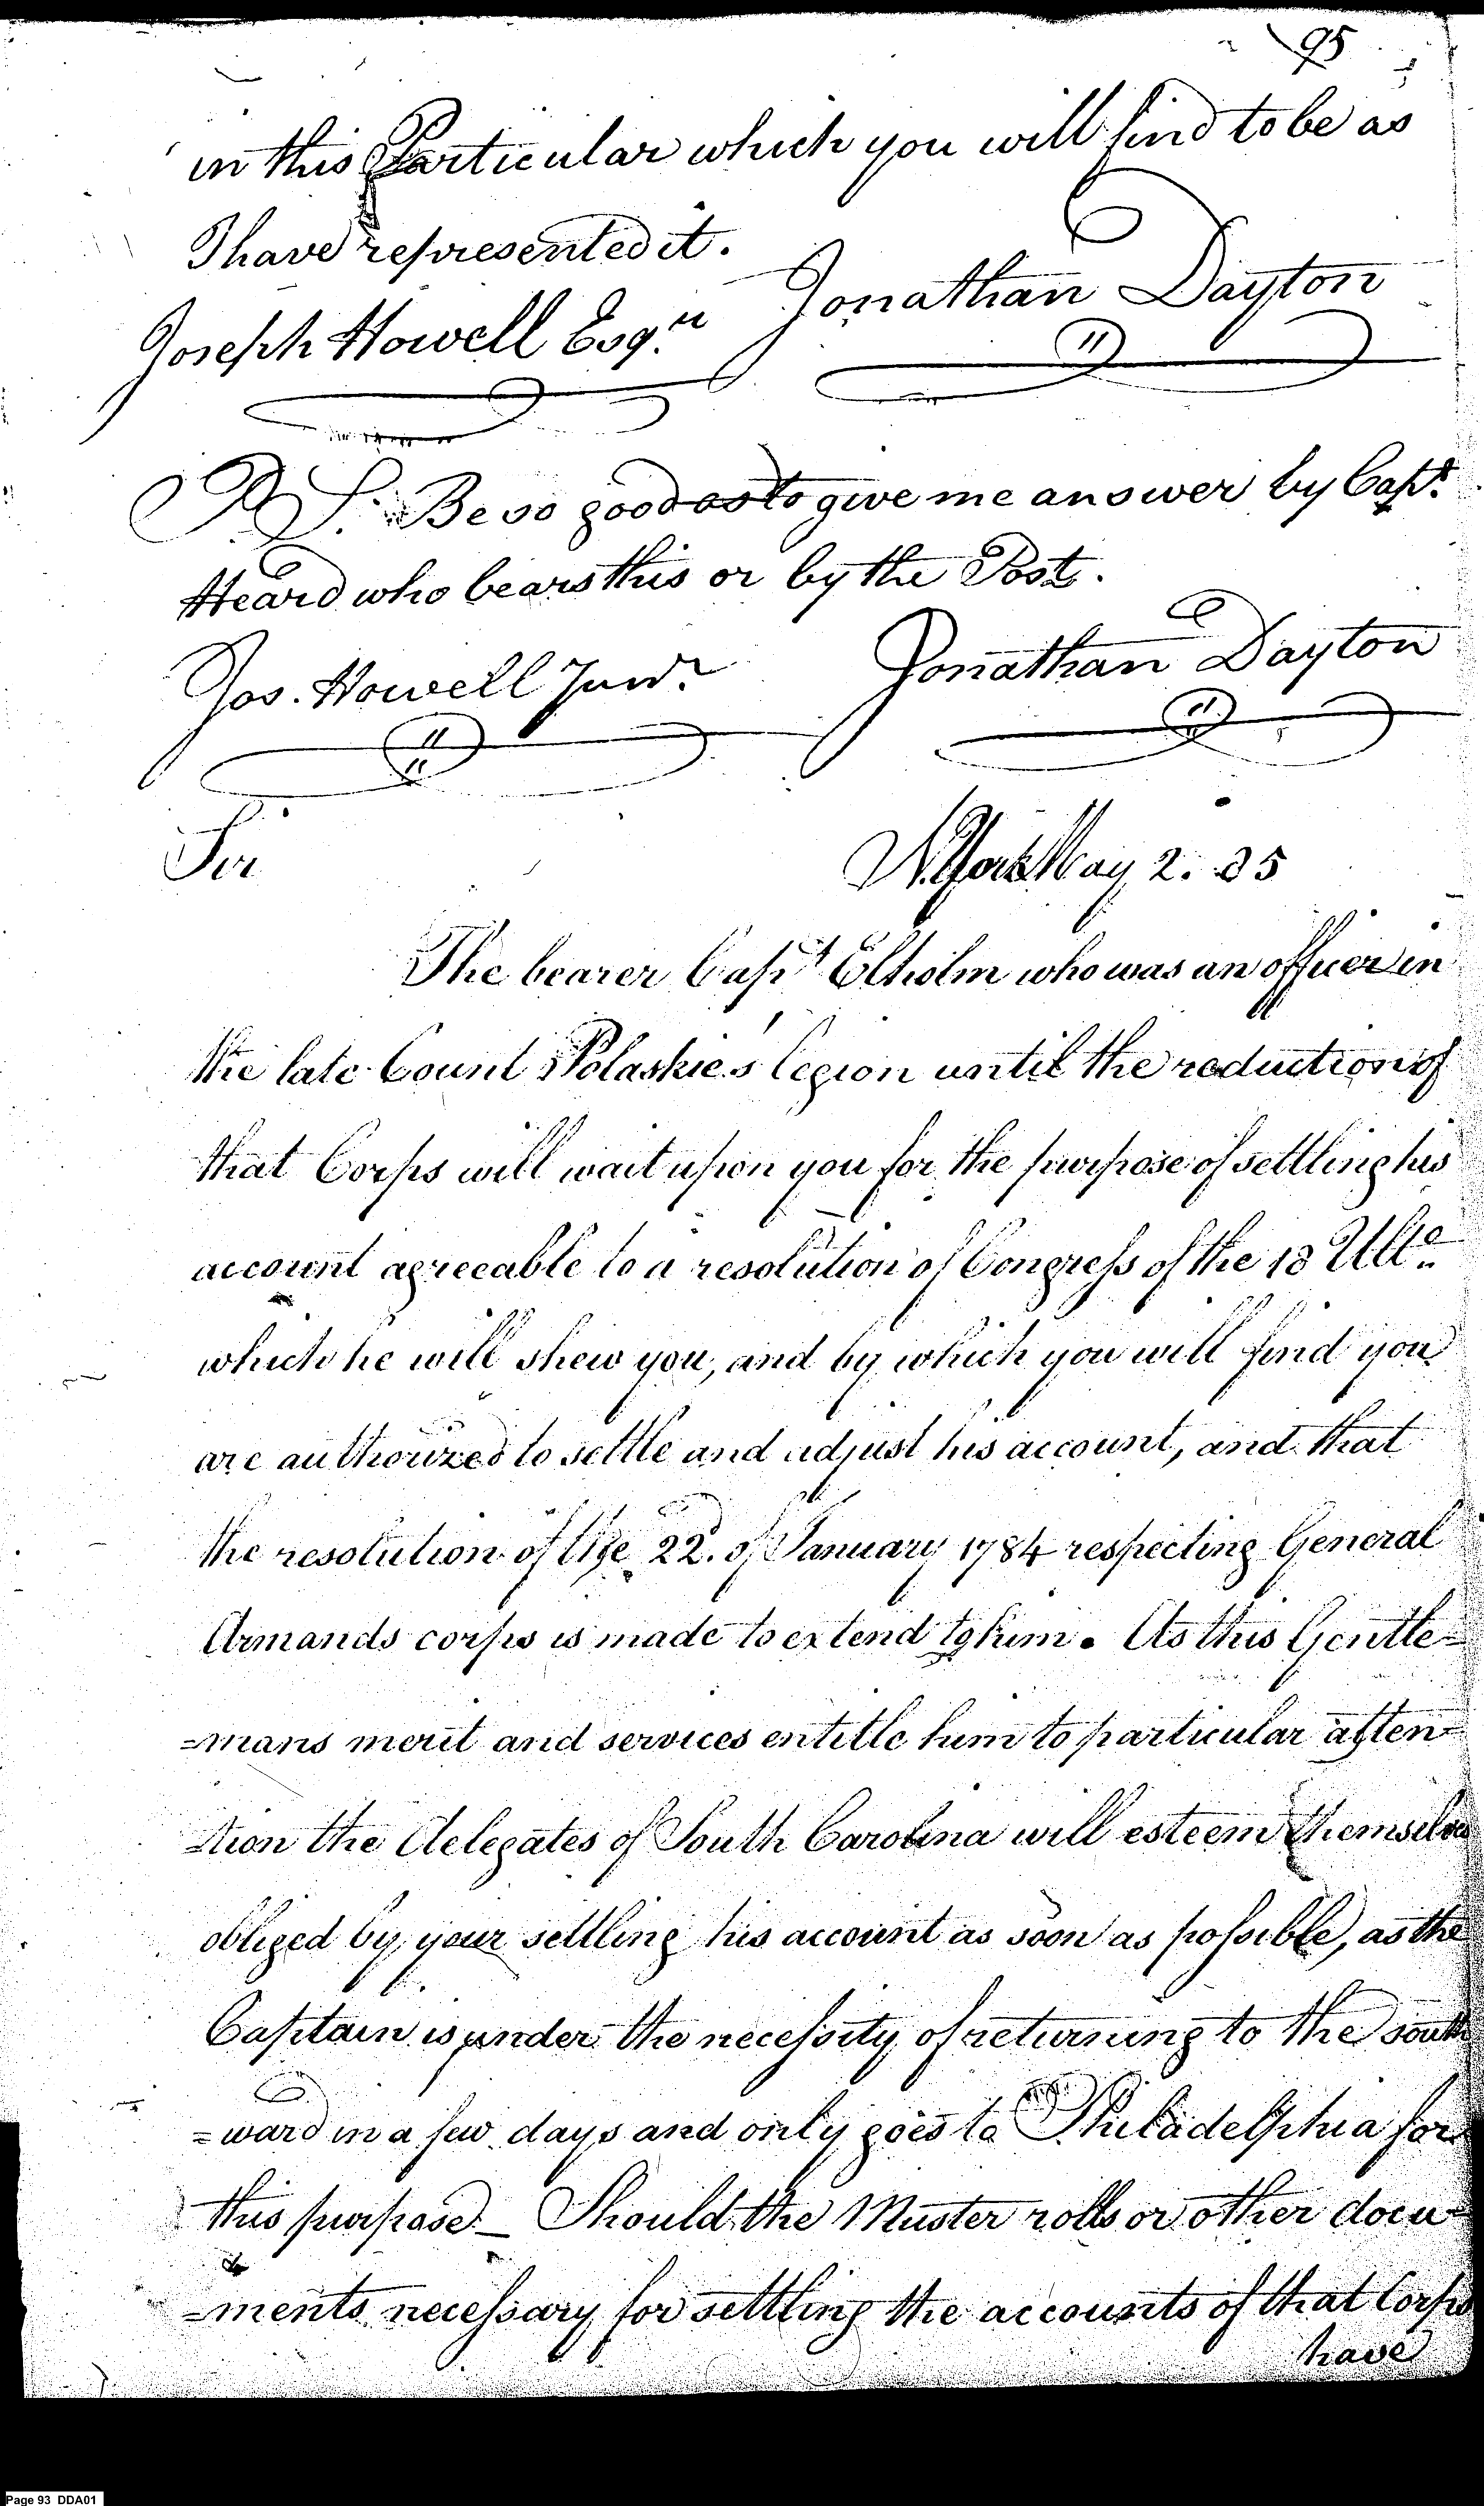 95
in this Particular which you will find to be as
I have represented it.
Jonathan Dayton
Joseph Howell Esq.re
P. S. Be so good as to give me answer by Capt.
Heard who bears this or by the Post.
Jonathan Dayton
Jos. Howell Junr.
Sir
N. York May 2. 85
The bearer Capt Elholm who was an officer in
the late Count Polaskie's Legion until the reduction of
that Corps will wait upon you for the purpose of settling his
account agreeable to a resolution of Congress of the 18 Ulto.
which he will shew you, and by which you will find you
are authorized to settle and adjust his account, and that
the resolution of the 22d. of January 1784 respecting General
Armands corps is made to extend to him. As this Gentle=
=mans merit and services entitle him to particular atten=
=tion the delegates of South Carolina will esteem themselves
obliged by your settling his account as soon as possible, as the
Captain is under the necessity of returning to the south
=ward in a few days and only goes to Philadelphia for
this purpose_ Should the Muster rolls or other docu=
=ments necessary for settling the accounts of that Corps
have
Page 93 DDA01